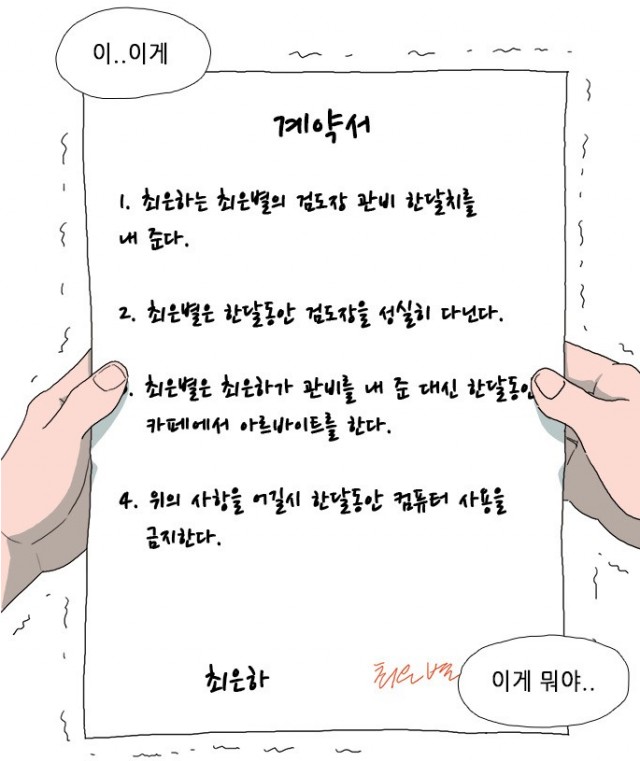 이..이게
계약서
1. 최은하는 최은별의 검도장 관비 한달치를
내 준다.
2. 최은별은 한달동안 검도장을 성실히 다닌다.
. 최은별은 최은하가 관비를 내 준 대신 한달동안
카페에서 아르바이트를 한다.
4. 위의 사항을 어길시 한달동안 컴퓨터 사용을
금지한다.
최은하 최은별
이게 뭐야..